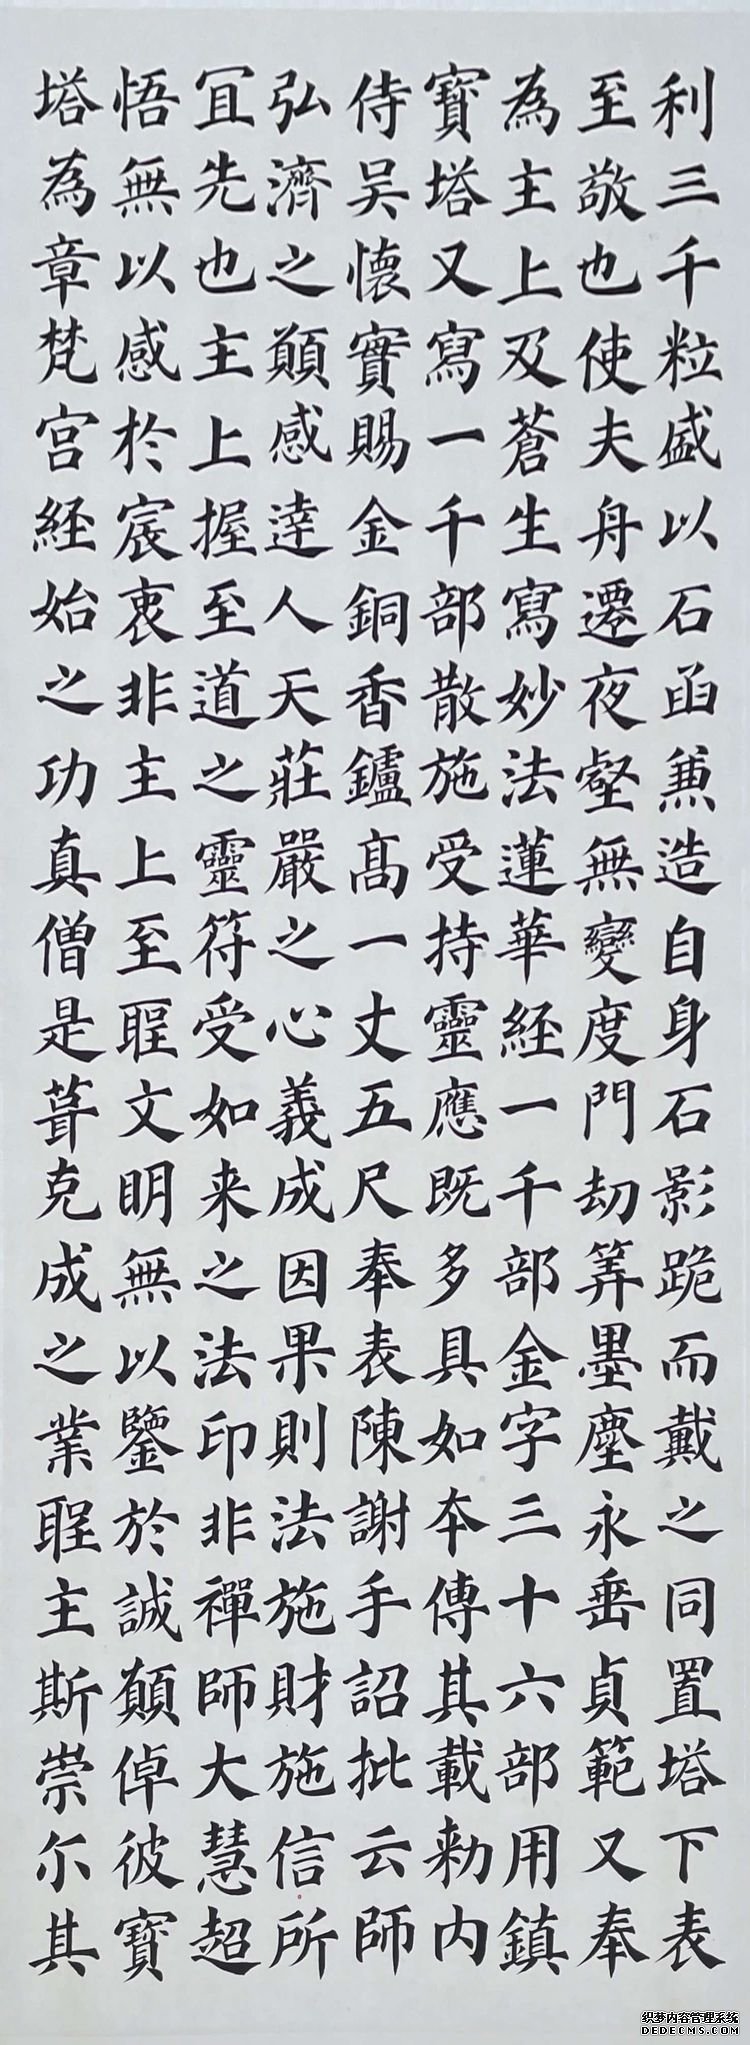 利三千粒盛以石函兼造自身石影跪而戴之同置塔下表
至敬也使夫舟遷夜壑無變度門劫筭墨塵永垂貞範又奉
為主上及蒼生寫妙法蓮華経一千部金字三十六部用鎮
寶塔又寫一千部散施受持靈應既多具如本傳其載勑内
侍吴懷實賜金銅香鑪髙一丈五尺奉表陳謝手詔批云師
弘濟之願感達人天莊嚴之心義成因果則法施財施信所
冝先也主上握至道之靈符受如来之法印非禪師大慧超
悟無以感於宸衷非主上至聖文明無以鑒於誠願倬彼寶
塔為章梵宫経始之功真僧是葺克成之業聖主斯崇尓其
织梦内容管理系统
DEDECMS.COM